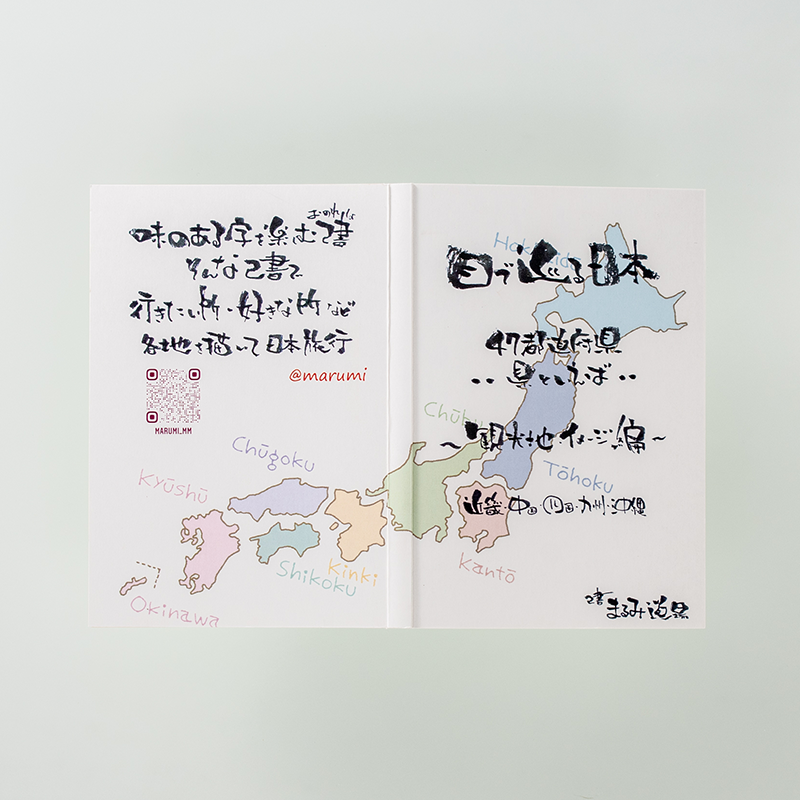 おのれしょ
味のある字を楽しむ己書
そんな己書で
行きたい所・好きな所など
各地を描いて日本旅行
@marumi
MARUMI_MM
Chūgoku
Kyūshū
Shikoku
Kinki
Okinawa
Hokkaido
目で巡る日本
47都道府県
・・県といえば・・
Chūbu
～観光地・イメージ編～
Tōhoku
近畿・中国・四国・九州・沖縄
Kantō
己書
まるみ道場